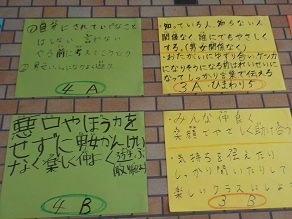 ①自分にされていやなことは
しない 言わない
やる前に考えてこうどう
4 A
・知っている人、知らない人
関係なく誰にでもやさしく
する。(男女関係なく)
・おたがいにゆずり合いケンカ
になりそうになるすればいいに
なってしっかり言葉で伝える
3 A ひまわり5
悪口やぼう力を
せずに男女かんけい
なく楽しく仲よく遊ぶ
4 B
・みんな仲良く
笑顔でやさしく助け合う
・気持ちを伝えたり
しっかり聞いたりして
楽しいクラスにしよう
3 B